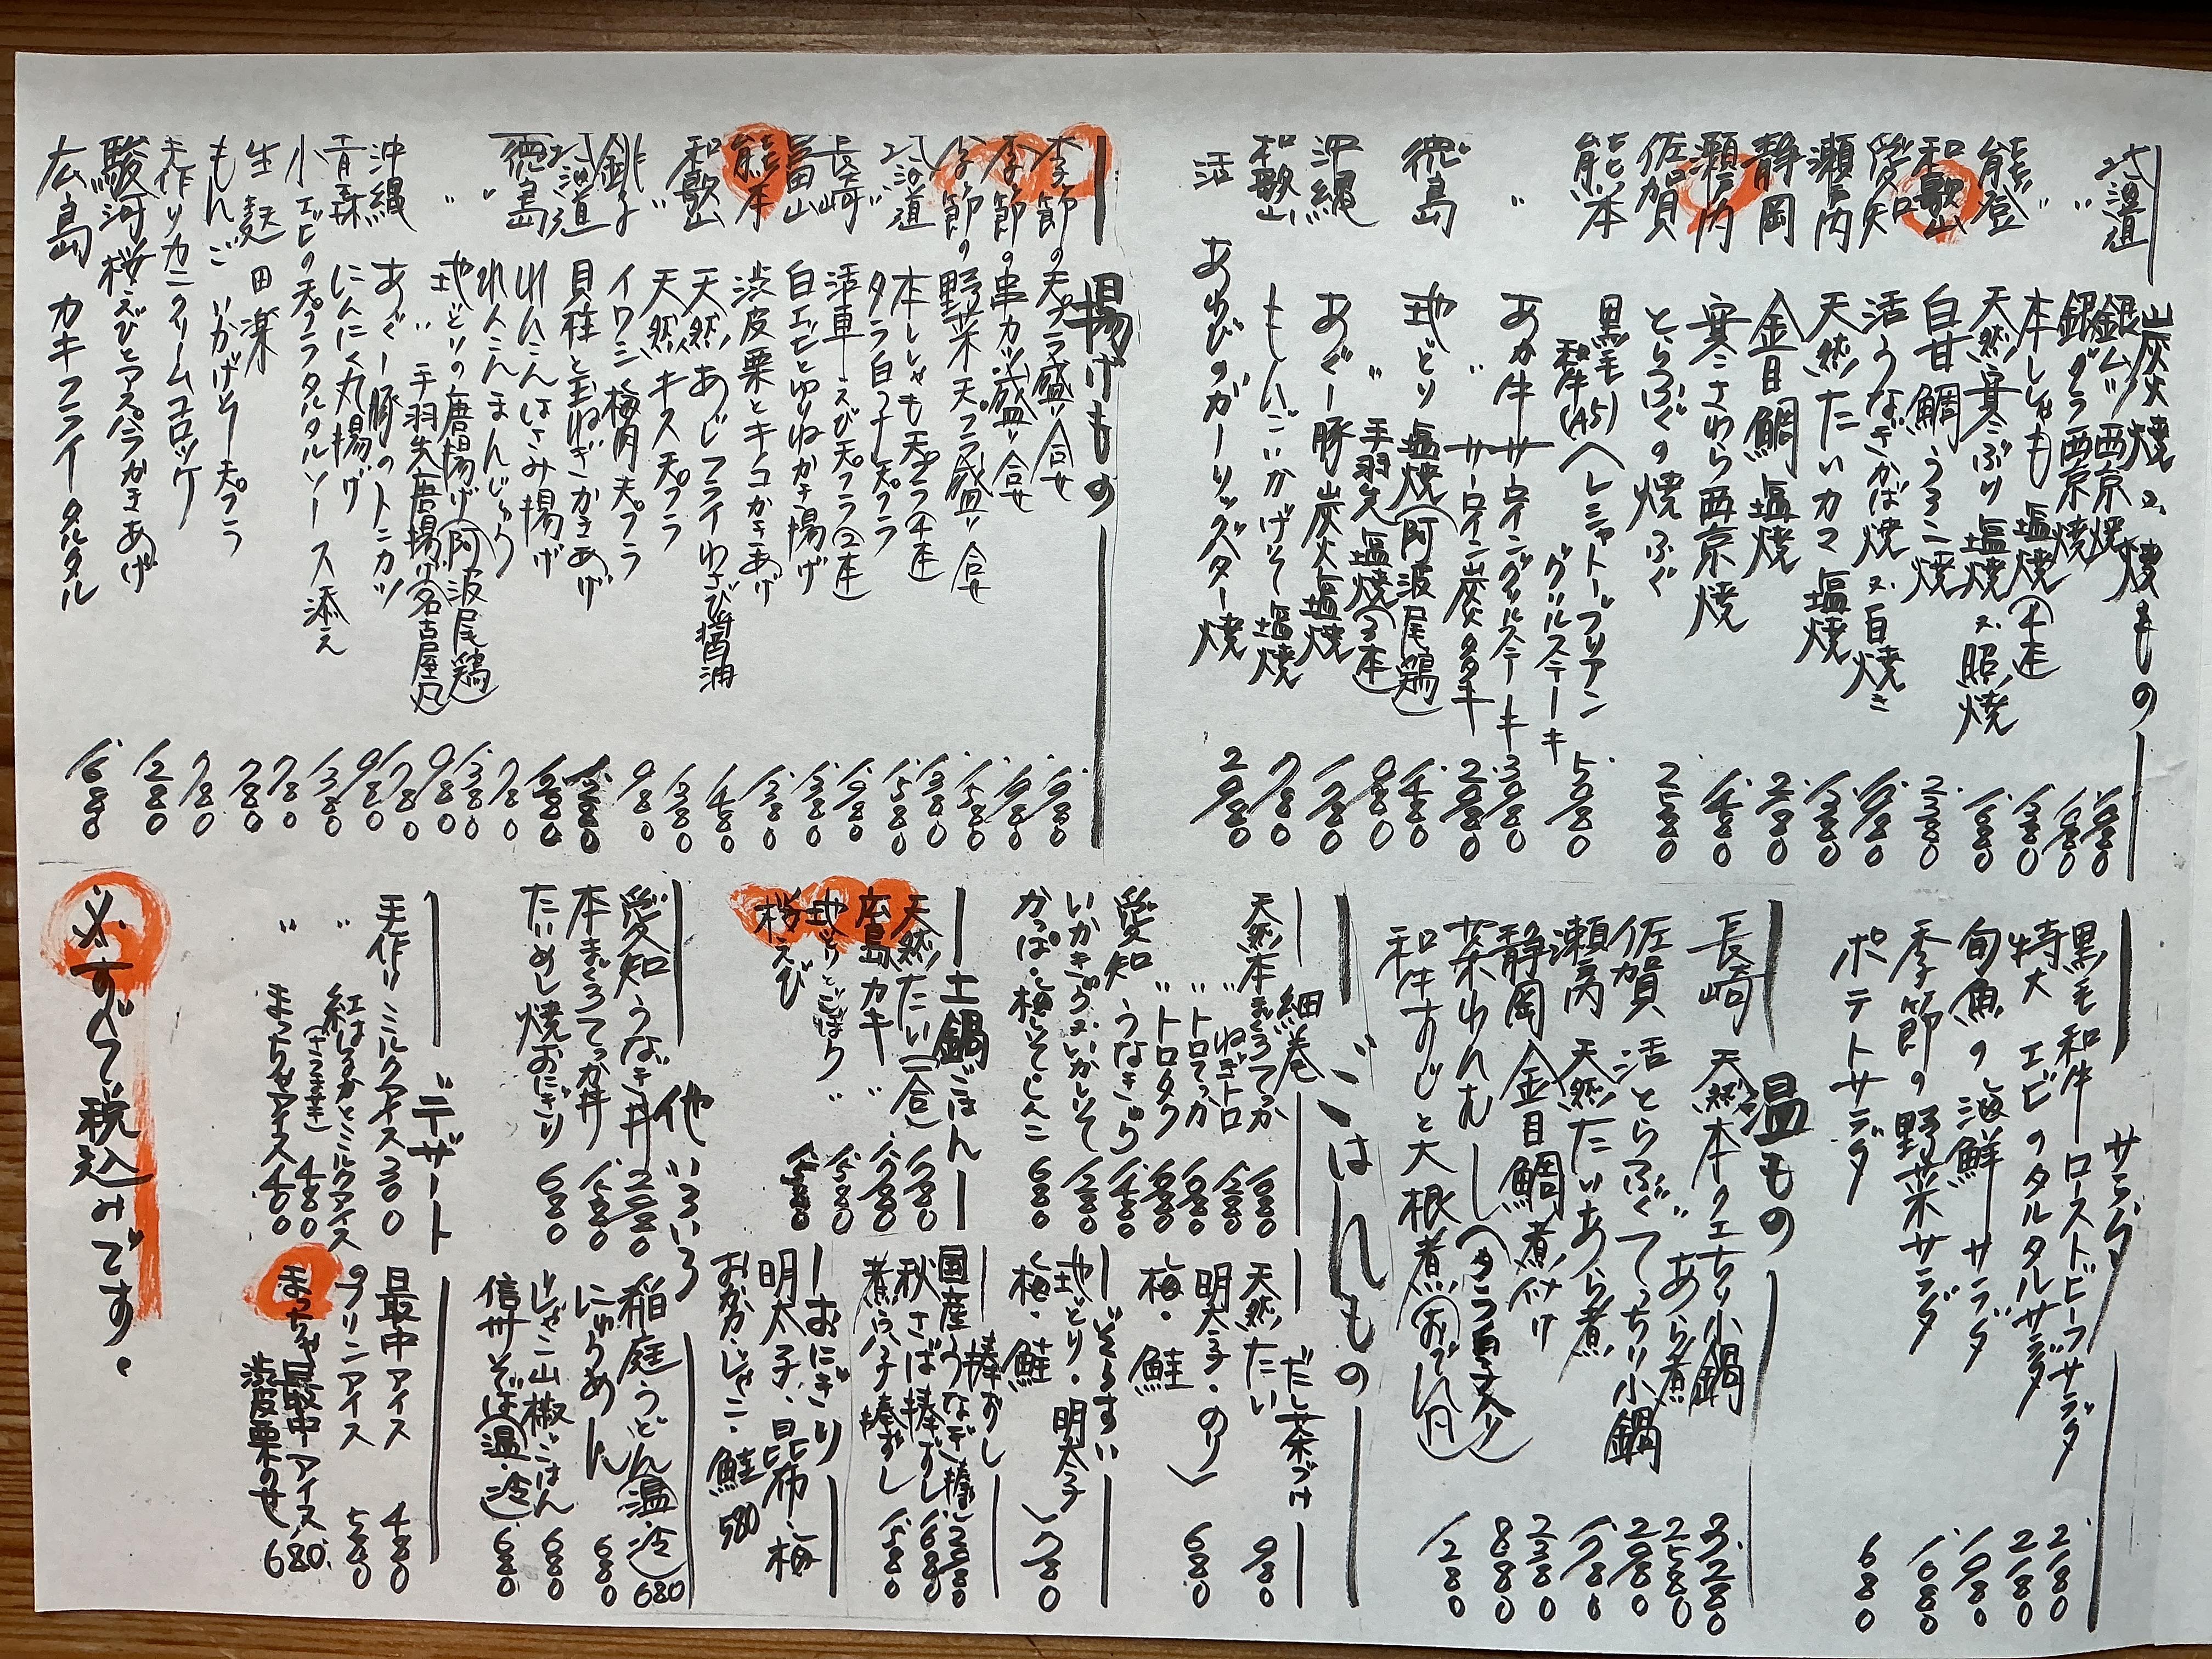 炭火焼又焼もの
北海道 銀ムツ西京焼 1,980
〃 銀ダラ西京焼 1,980
本ししゃも塩焼(4本) 1,380
能登 天然寒ぶり塩焼又照焼 1,680
和歌山 白甘鯛うろこ焼 2,380
愛知 活うなぎかば焼又白焼き
瀬戸内 天然たいカマ塩焼 1,380
静岡 金目鯛塩焼
瀬戸内 寒さわら西京焼 1,480
佐賀 とらふぐの焼ふぐ 2,580
熊本 黒毛和牛(A5)ヘレシャトーブリアングリルステーキ 5,980
〃 あか牛サーロイングリルステーキ 3,980
〃 サーロイン炭タタキ
徳島 地どり塩焼(阿波尾鶏) 1,480
〃 手羽先塩焼(3本) 980
沖縄 あぐー豚炭火塩焼 1,780
和歌山 もんごいかげそ塩焼 780
活 あわびのガーリックバター焼 2,980
揚げもの
季節の天プラ盛り合せ 1,980
季節の串カツ盛り合せ 1,980
季節の野菜天プラ盛り合せ 1,580
北海道 本ししゃも天プラ(4本) 1,380
〃 タラ白子天プラ 1,580
長崎 活車えび天プラ(2本) 1,980
富山 白エビとゆりねかき揚げ 1,380
熊本 渋皮栗とキノコかきあげ 1,380
和歌山 天然あじフライわさび醤油 1,480
〃 天然キス天プラ 1,380
銚子 イワシ梅肉天プラ 980
北海道 貝柱と玉ねぎかきあげ
徳島 れんこんはさみ揚げ
〃 れんこんまんじゅう 780
地どりの唐揚げ(阿波尾鶏) 1,380
〃 手羽先唐揚げ(名古屋風) 980
沖縄 あぐー豚のトンカツ 1,780
青森 にんにく丸揚げ 980
小エビの天プラタルタルソース添え 1,380
生麩田楽 780
もんごいかげそ天プラ 780
手作りカニクリームコロッケ 780
駿河桜えびとアスパラかきあげ 1,280
広島 カキフライタルタル 1,680
サラダ
黒毛和牛ローストビーフサラダ 2,180
特大エビのタルタルサラダ 2,180
旬魚の海鮮サラダ 1,980
季節の野菜サラダ 1,680
ポテトサラダ 680
温もの
長崎 天然本クエちり小鍋 3,280
〃 あら煮 2,580
佐賀 活とらふぐてっちり小鍋 2,980
瀬戸内 天然たいあら煮 1,780
静岡 金目鯛煮付け 2,380
茶わんむし(タラ白子入り) 880
和牛すじと大根煮(おでん風) 1,280
ごはんもの
細巻
天然本まぐろてっか 1,680
〃 ねぎトロ 1,280
〃 トロてっか 1,680
〃 トロタク
愛知 うなきゅう 1,480
いかきゅう又いかしそ 1,280
かっぱ・梅しそしんこ 680
だし茶づけ
天然たい 980
明太子・のり
梅・鮭 680
ぞうすい
地どり・明太子
梅・鮭 780
土鍋ごはん
天然たい(一合) 1,780
広島カキ 〃 1,780
地どりとごぼう 〃 1,580
桜えび
棒ずし
国産うなぎ棒ずし 2,980
秋さば棒ずし 1,680
煮穴子棒ずし 1,580
おにぎり
明太子、昆布、梅
おかか・じゃこ・鮭 580
他いろいろ
愛知うなぎ丼 2,980
本まぐろてっか丼 1,580
たいめし焼おにぎり 680
稲庭うどん(温・冷) 680
にゅうめん 680
じゃこ山椒ごはん 680
信州そば(温・冷) 680
デザート
手作りミルクアイス 300
〃 紅はるかとミルクアイス(さつまいも) 480
〃 まっちゃアイス 400
最中アイス 480
プリンアイス 580
まっちゃ最中アイス渋皮栗のせ 680
※すべて税込みです。